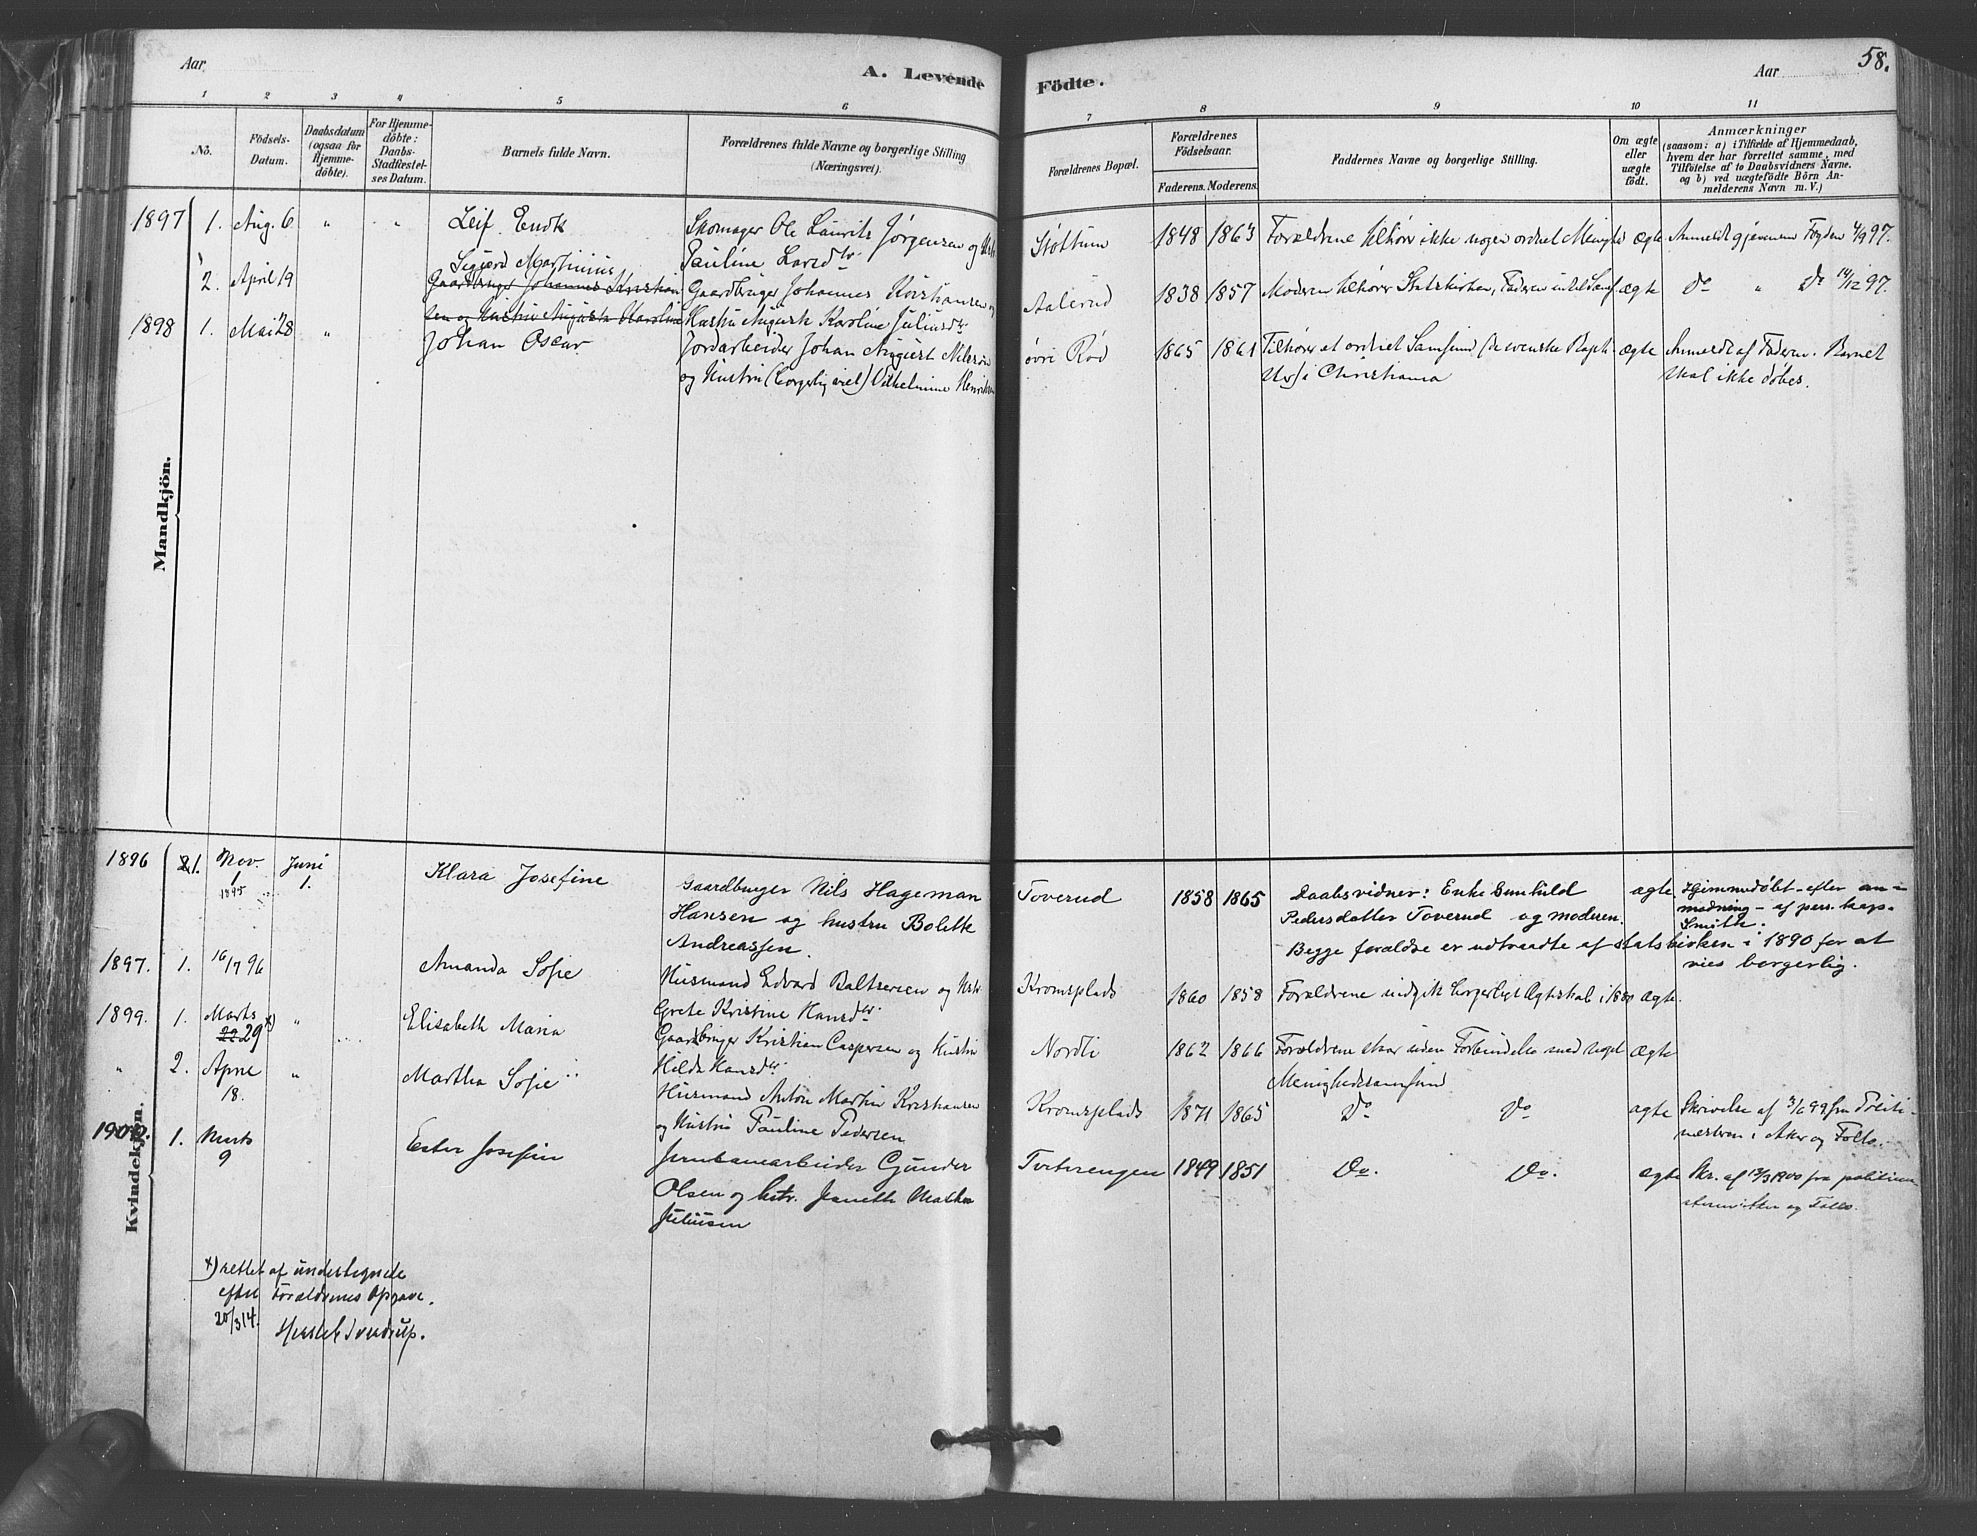 Aar
A. Levende
Födte.
Aar
58.
1 2 3 4 5 6 7 8 9 10 11
No.
Födsels-
Datum.
Daabsdatum
(ogsaa for
Hjemme-
döbte).
For Hjemme-
döbte:
Daabs-
Stadfæstel-
ses Datum.
Barnets fulde Navn.
Forældrenes fulde Navne og borgerlige Stilling
(Næringsvei).
Forældrenes Bopæl.
Forældrenes
Födselsaar.
Faderens. Moderens.
Faddernes Navne og borgerlige Stilling.
Om ægte
eller
uægte
födt.
Anmærkninger
(saasom: a) i Tilfælde af Hjemmedaab,
hvem der har forrettet samme, med
Tilföielse af to Daabsvidners Navne.
og b) ved uægtefödte Börn An-
melderens Navn m. V.)
Mandkjön.
1897 1. Aug. 6 " " Leif Endk
Skomager Ole Laurits Jørgensen og Hustr
Pauline Larsdtr
Støttum 1848 1863 Forældrene tilhøre ikke nogen ordnet Menighed ægte Anmeldt gjennem Fogden 4/9 97.
2. April 19 Sigurd Martinius
Gaardbruger Johannes Kristian
sen og Hustru Augusta Karoline
Gaardbruger Johannes Kristiansen og
Hustru Augusta Karoline Juliusdtr
Aalerud 1838 1857 Moderen tilhører Statskirken, Faderen ægte Do " Do 14/12 97.
1898 1. Mai 28 " Johan Oscar
Jordarbeider Johan August Nilsson
og Hustru (borgerlig viet) Vilhelmine Henriksen
øvre Rød 1865 1861 Tilhører et ordnet Samfund (de svenske Bapti
ster) i Christiania
ægte Anmeldt af Faderen. Barnet
skal ikke døbes.
Kvindekjön.
1896 1. Nov. 1 1895 Juni 1. Klara Josefine
Gaardbruger Nils Hageman
Hansen og hustru Bolette
Andreassen.
Toverud 1858 1865 Daabsvidner: Enke Gunhild
Pedersdatter Toverud og moderen.
ægte Hjemmedøbt efter an-
modning af pers. kap.
Smith.
Begge forældre er udtraadte af statskirken i 1890 for at
vies borgerlig.
1897. 1. 16/7 96 Amanda Sofie
Husmand Edvard Baltsersen og Hstr
Grete Kristine Hansdtr.
Kromsplads 1860 1858 Forældrene indgik borgerligt Ægteskab i 1880 ægte.
1899. 1. Marts 22 29 x) " Elisabeth Maria
Gaardbruger Kristian Caspersen og Hustru
Hilda Hansdtr
Nordli 1862 1866 Forældrene staar uden Forbindelse med noget
Menighedssamfund
ægte
" 2. April 18. " Martha Sofie
Husmand Anton Martin Kristiansen
og Hustru Pauline Pedersen
Kromsplads 1871 1865 Do Do ægte Skrivelse af 3/6 99 fra Politi-
mesteren i Aker og Follo.
1900. 1. Marts 9 Ester Josefine
Jernbanearbeider Gunder
Olsen og hstr. Jeanette Mathea
Juliusen
Tveterengen 1849 1851 Do. Do. ægte Skr. af 12/3 1900 fra politime
steren i Aker og Follo.
x) rettet af undertegnede
efter Forældrenes Opgave.
20/3 14.
Sverdrup.